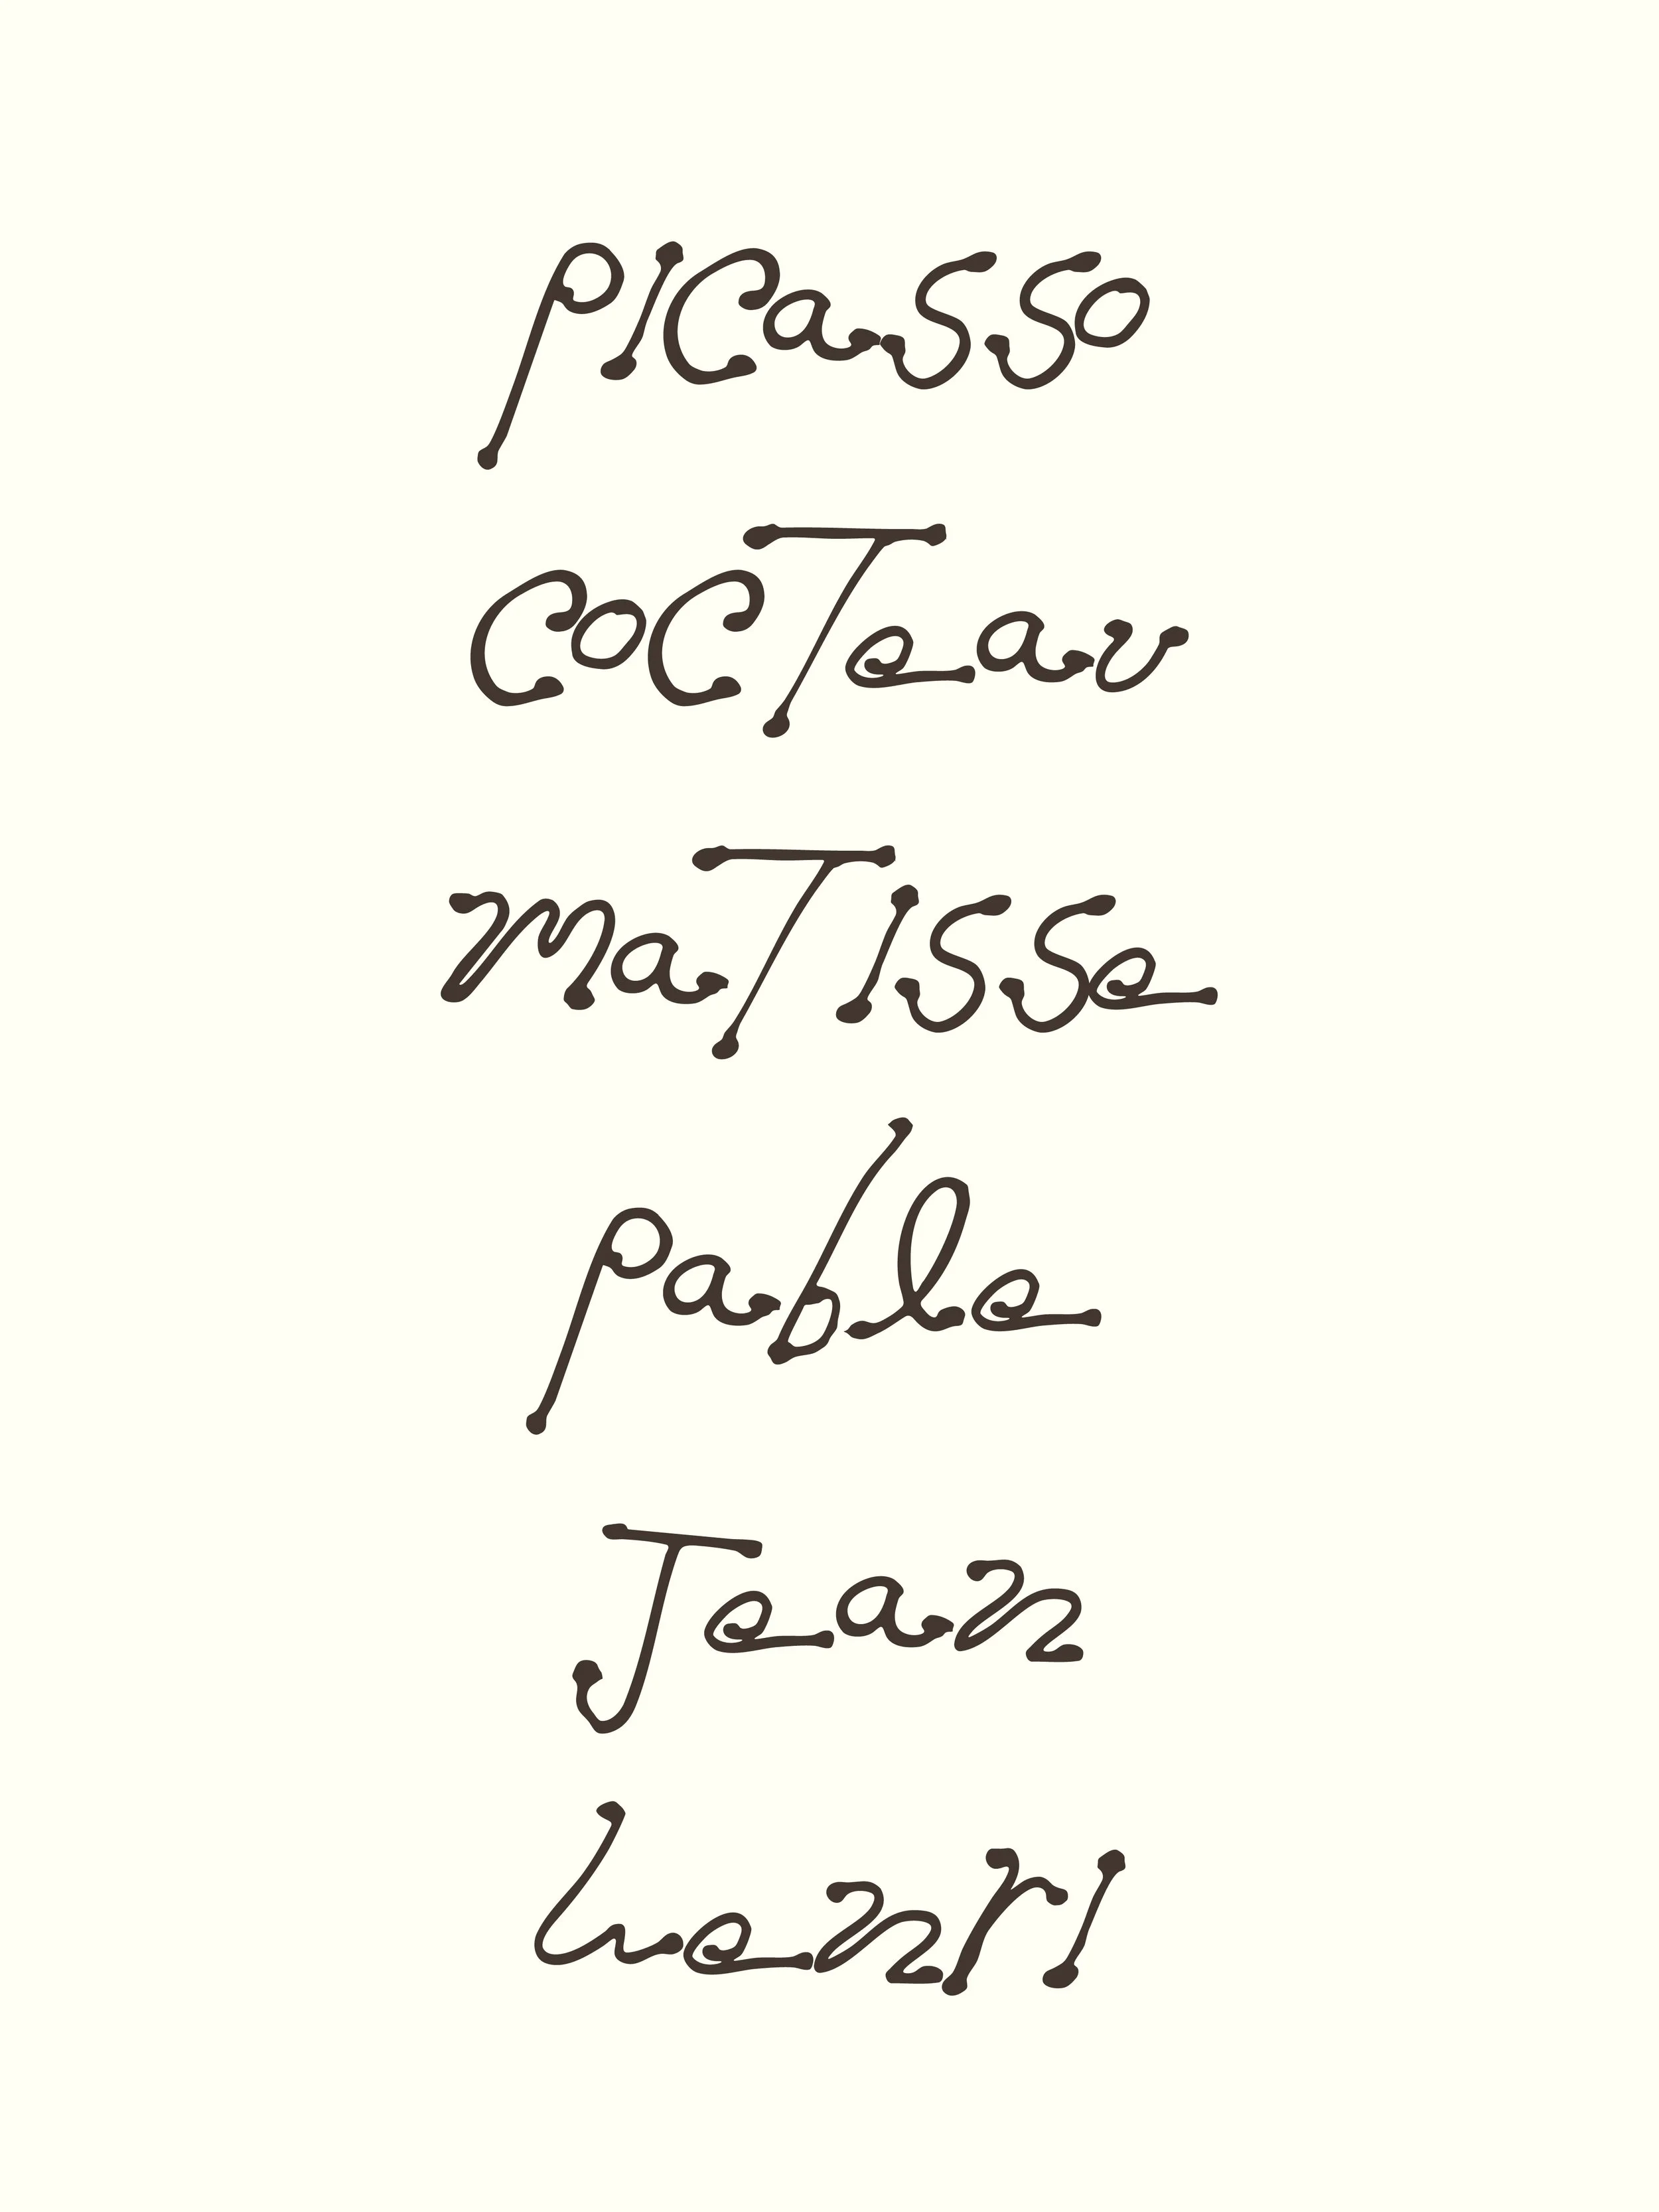 picasso
cocTeau
maTisse
pable
Jean
henri